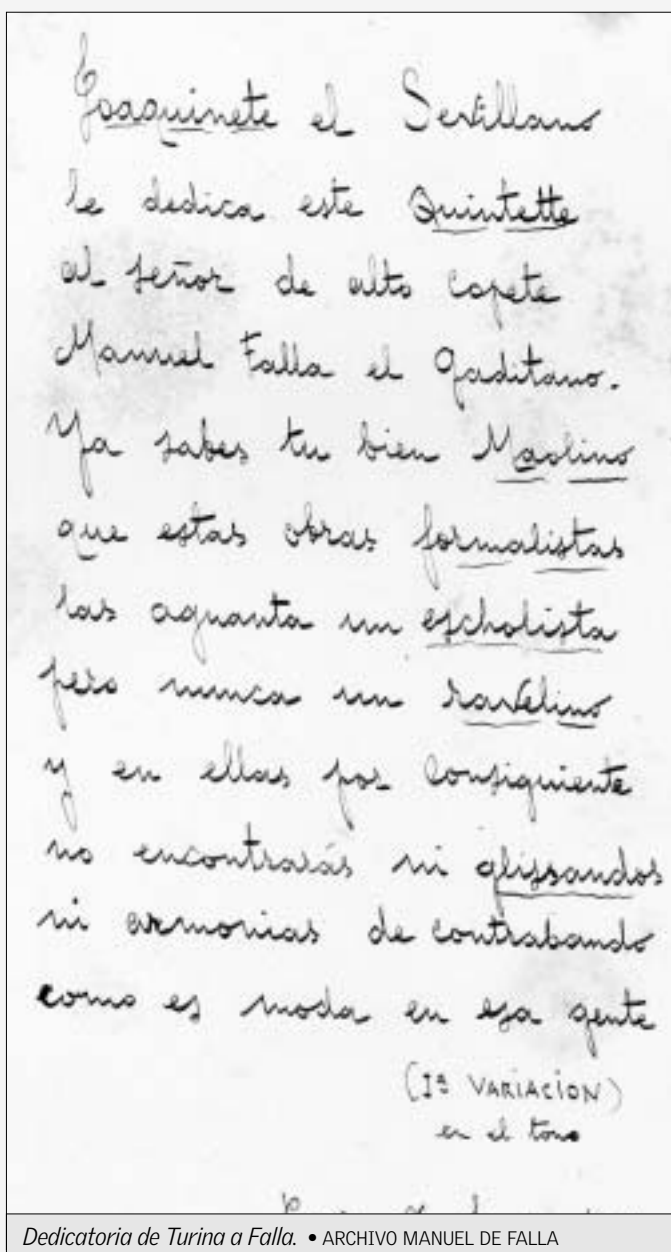 Joaquinete el Sevillano
le dedica este Quintette
al señor de alto copete
Manuel Falla el Gaditano.
Ya sabes tu bien Maolino
que estas obras formalistas
las aguanta un escholista
pero nunca un ravelino
y en ellas por consiguiente
no encontrarás ni glissandos
ni armonias de contrabando
como es moda en esa gente
(Iª VARIACIÓN)
en el tono
Dedicatoria de Turina a Falla. • ARCHIVO MANUEL DE FALLA